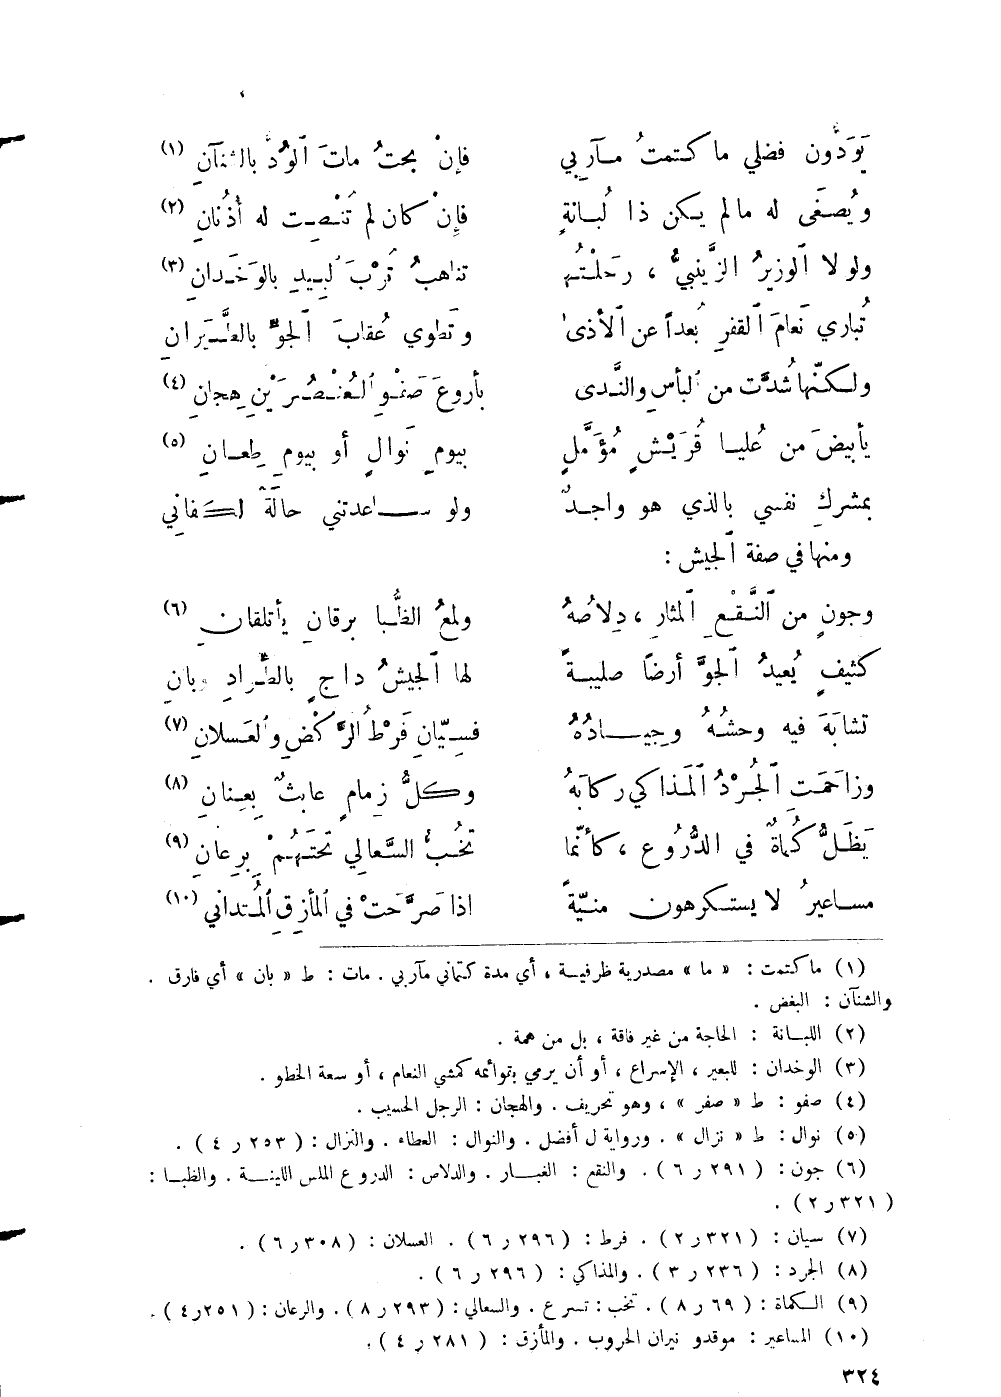 يَوَدُّون فضلي ما كتمتُ مآربي فإنْ بحتُ ماتَ ٱلوُدُّ بالشنآنِ (١)
ويُصغَى له مالم يكن ذا لُبانةٍ فإِنْ كان لم تُنْصِت له أُذُنانِ (٢)
ولولا ٱلوزيرُ الزَّينبيُّ ، رَحَلْتُها تناهبُ تُرْبَ ٱلبِيدِ بالوَخَدانِ (٣)
تُباري نَعامَ ٱلقفرِ بُعداً عن ٱلأذىٰ وتَطوي عُقابَ ٱلجوِّ بالطَّيَرانِ
ولكنّها شُدَّت من ٱلبأسِ والنَّدى بأروعَ صَفْوِ ٱلعُنْصُرَيْنِ هِجانِ (٤)
بأبيضَ من عُليا قُرَيْشٍ مُؤَمَّلٍ بيومِ نَوالٍ أو بيومِ طِعانِ (٥)
بمشركِ نفسي بالذي هو واجدٌ ولو ساعدتني حالَةٌ لكفاني
ومنها في صفة ٱلجيش :
وجونٍ من ٱلنَّقْعِ ٱلمثارِ ، دِلاصُهُ ولمعُ الظُّبا برقانِ يأتلقانِ (٦)
كثيفٍ يُعيدُ ٱلجوَّ أرضًا صليبةً لها ٱلجيشُ داجٍ بالطِّرادِ وبانِ
تشابَهَ فيه وحشُهُ وجِيادُهُ فسِيّانِ فَرْطُ ٱلرَّكْضِ وٱلعَسلانِ (٧)
وزاحَمَت ٱلجُرْدُ ٱلمَذاكي ركابَهُ وكلُّ زِمامٍ عابثٌ بِعِنانِ (٨)
يَظَلُّ كُماةٌ في الدُّرُوعِ ، كأنّما تخُبُّ السَّعالي تحتَهُمْ بِرِعانِ (٩)
مساعيرُ لا يستكرهون منيّةً اذا صَرَّحَتْ في ٱلمأزِقِ ٱلمُتداني (١٠)
(١) ما كتمت : « ما » مصدرية ظرفية ، أي مدة كتماني مآربي . مات : ط « بان » أي فارق .
والشنآن : البغض .
(٢) اللبانة : الحاجة من غير فاقة ، بل من همة .
(٣) الوخدان : للبعير ، الإسراع ، أو أن يرمي بقوائمه كمشي النعام ، أو سعة الخطو .
(٤) صفو : ط « صفر » ، وهو تحريف . والهجان : الرجل الحسيب .
(٥) نوال : ط « نزال » . ورواية ل أفضل . والنوال : العطاء . والنزال : ( ٢٥٣ ر ٤ ) .
(٦) جون : ( ٢٩١ ر ٦ ) . والنقع : الغبار . والدلاص : الدروع الملس اللينة . والظبا :
( ٣٢١ ر ٢ ) .
(٧) سيان : ( ٣٢١ ر ٢ ) . فرط : ( ٢٩٦ ر ٦ ) . العسلان : ( ٣٠٨ ر ٦ ) .
(٨) الجرد : ( ٢٣٦ ر ٣ ) . والمذاكي : ( ٢٩٦ ر ٦ ) .
(٩) الكماة : ( ٦٩ ر ٨ ) . تخب : تسرع . والسعالي : ( ٢٩٣ ر ٨ ) . والرعان : ( ٢٥١ ر ٤ ) .
(١٠) المساعير : موقدو نيران الحروب . والمأزق : ( ٢٨١ ر ٤ ) .
٣٢٤